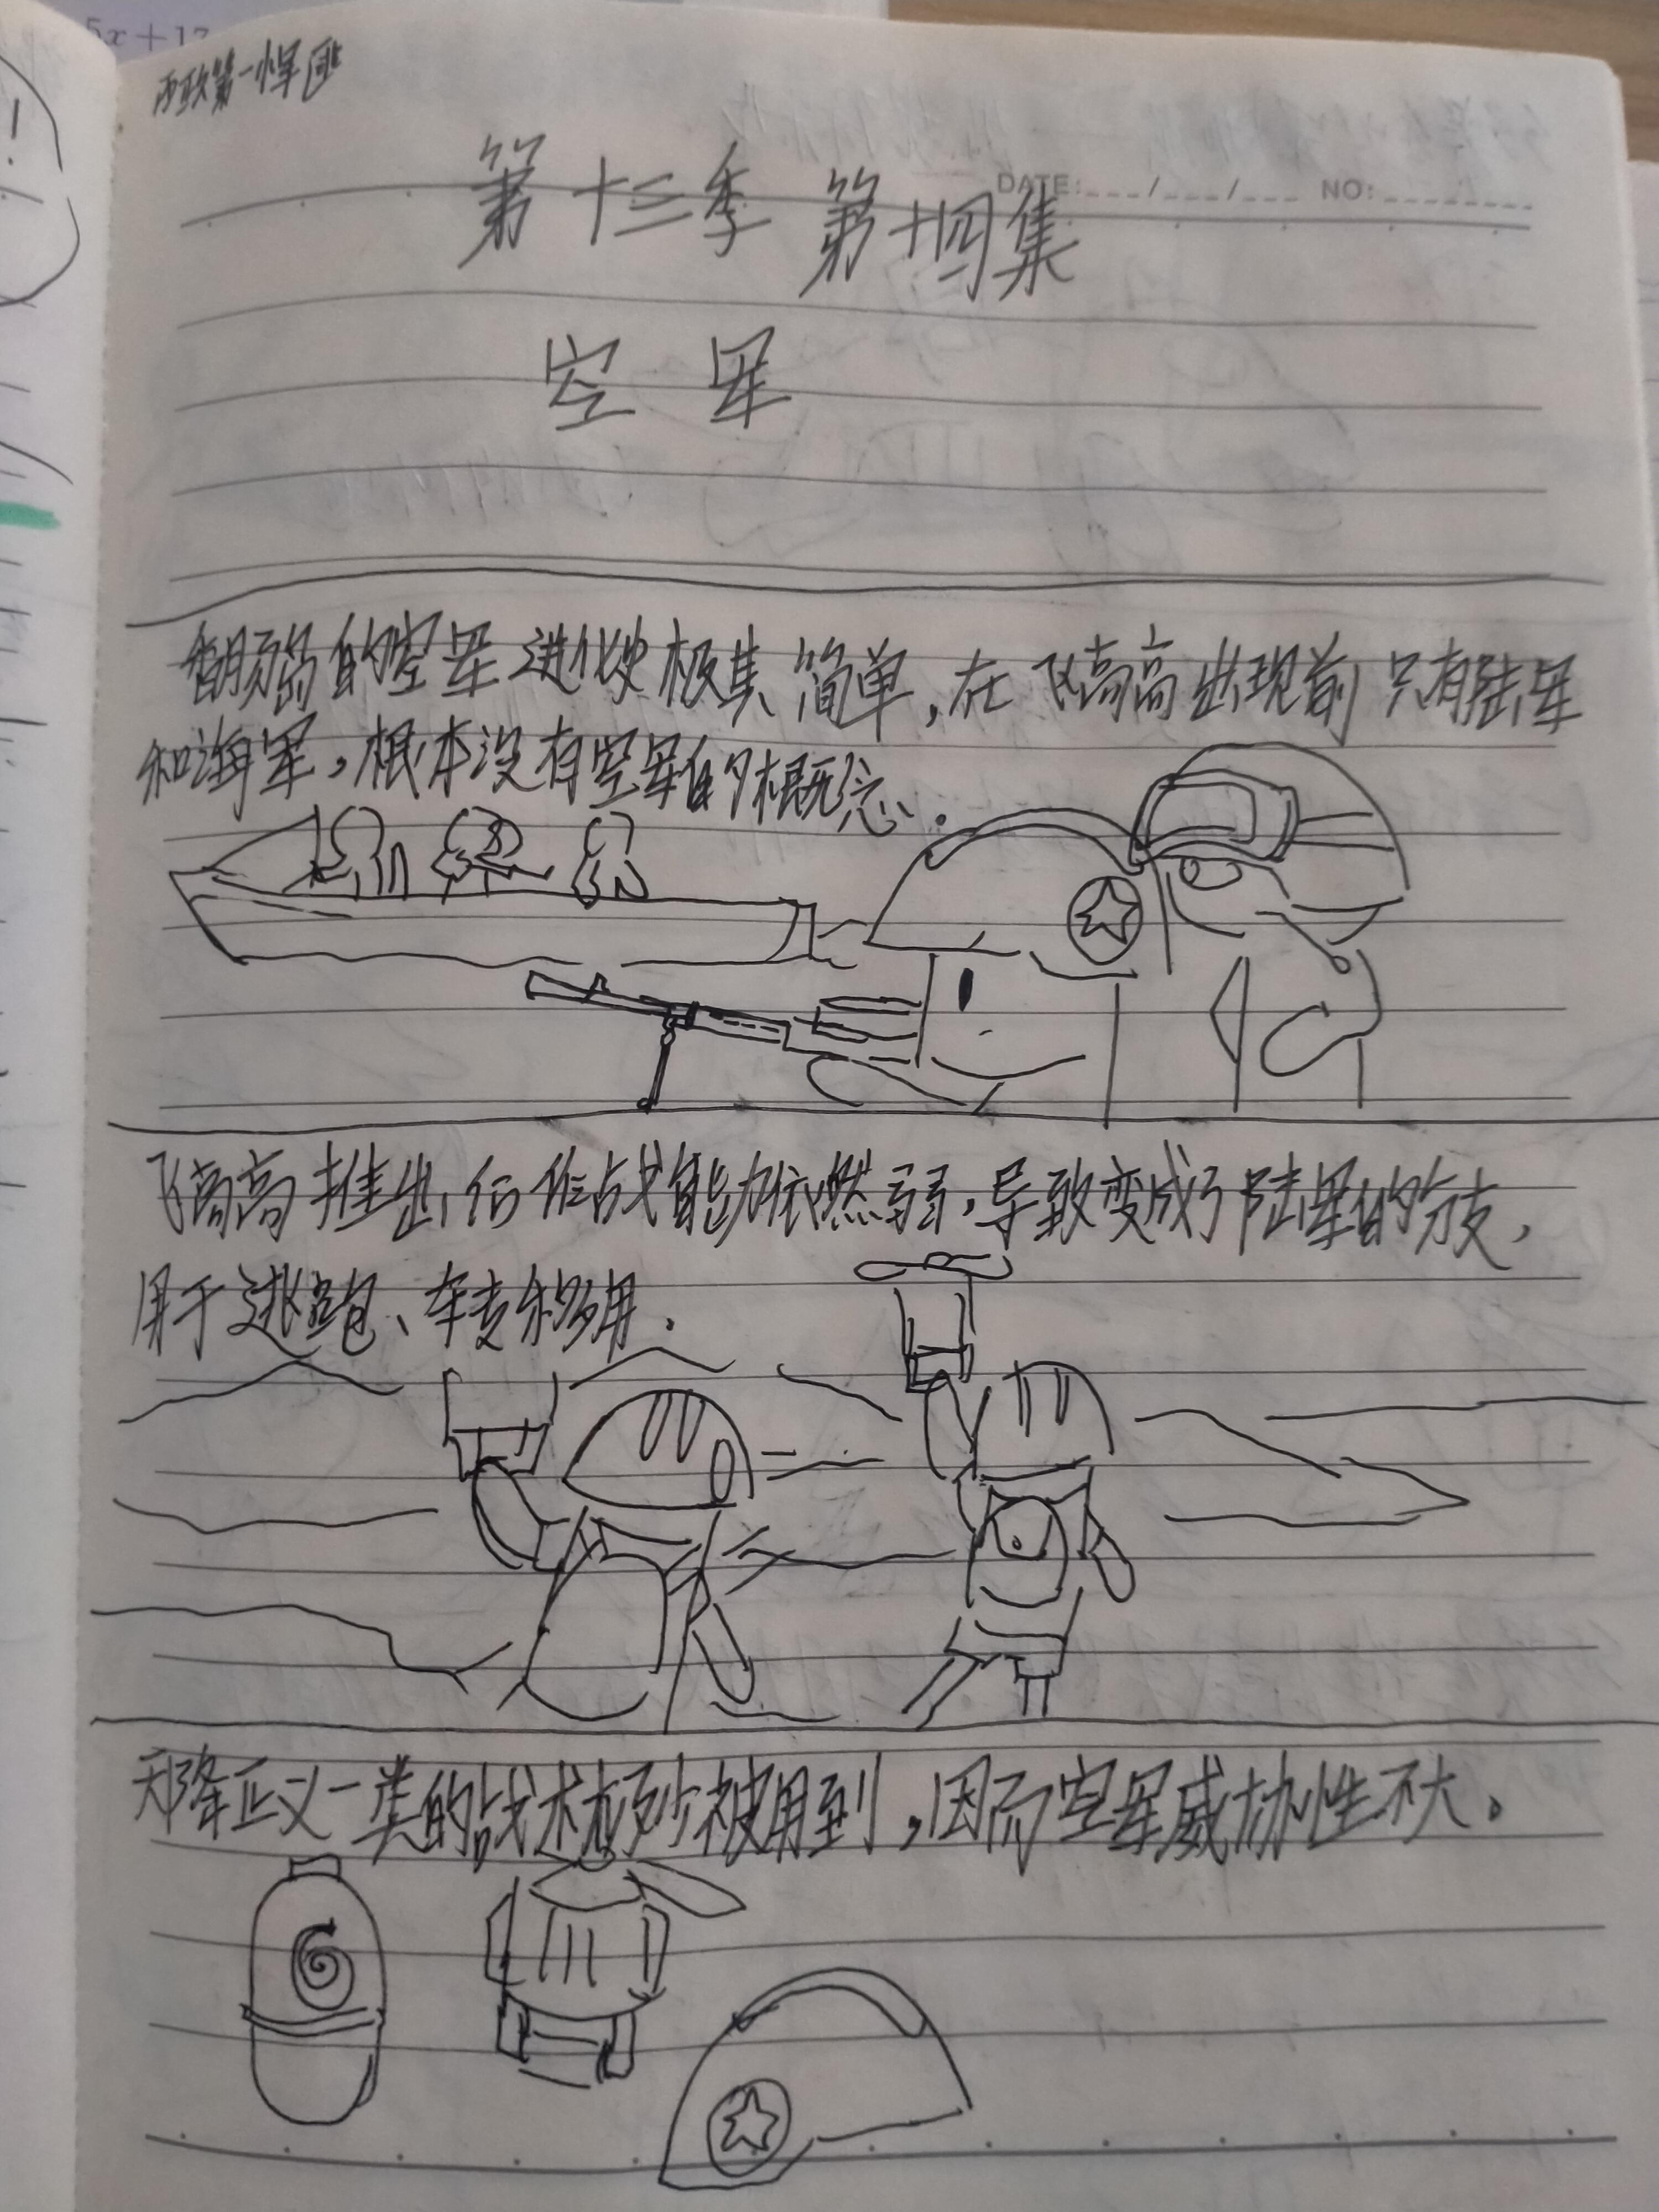 5x+17
西欧第一悍匪
DATE: ___/___/___ NO: ________
第十三季 第十四集
空军
的空军进化史极其简单,在飞高高出现前只有陆军
和海军,根本没有空军的概念.
飞高高推出,但作战能力依然弱,导致变成了陆军的分支,
用于逃跑、车麦和多用.
天降正义一类的战术极少被用到,因而空军威协性不大。